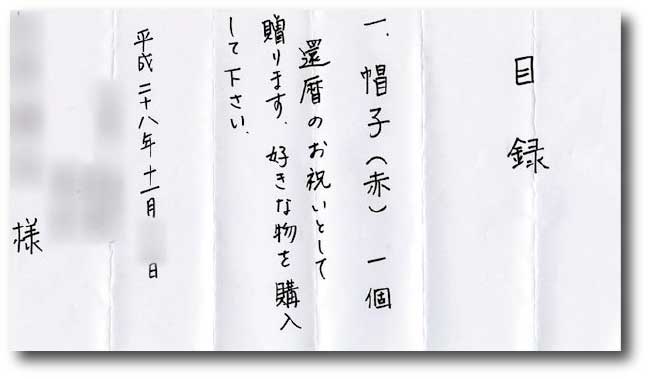 目録
一、帽子(赤) 一個
還暦のお祝いとして
贈ります。好きな物を購入
して下さい。
平成二十八年十一月 日
様